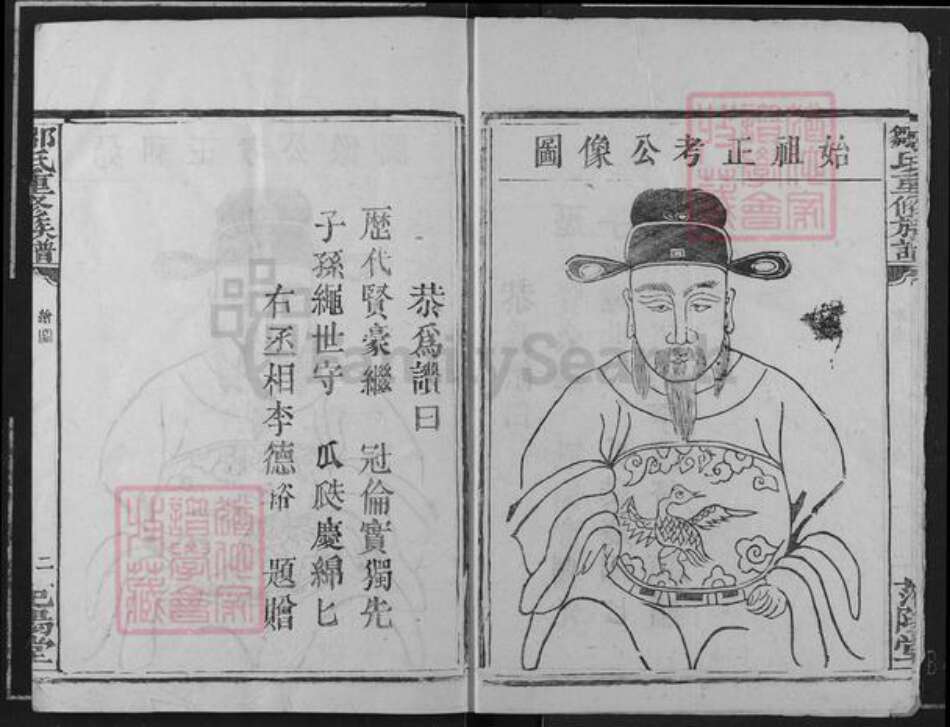 鄒氏重修族譜
范陽堂
始祖正考公像圖
恭爲讚曰
歷代賢豪繼 冠倫實獨先
子孫繩世守 瓜瓞慶綿匕
右丞相李德裕 題贈
鄒氏重修族譜
繪圖
二
范陽堂
FamilySearch